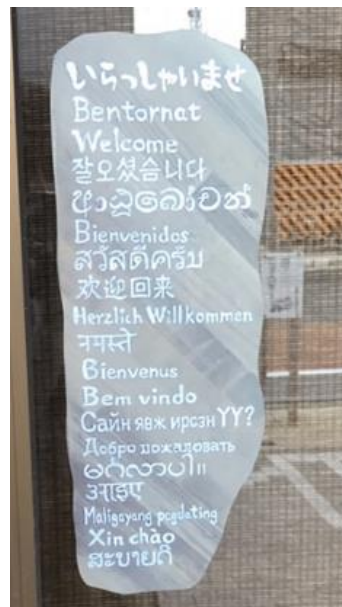 いらっしゃいませ
Bentornat
Welcome
잘오셨습니다
ආයුබෝවන්
Bienvenidos
สวัสดีครับ
欢迎回来
Herzlich Willkommen
नमस्ते
Bienvenus
Bem vindo
Сайн явж ирсэн YY?
Добро пожаловать
မင်္ဂလာပါ။
आइए
Maligayang pagdating
Xin chào
ສະບາຍດີ